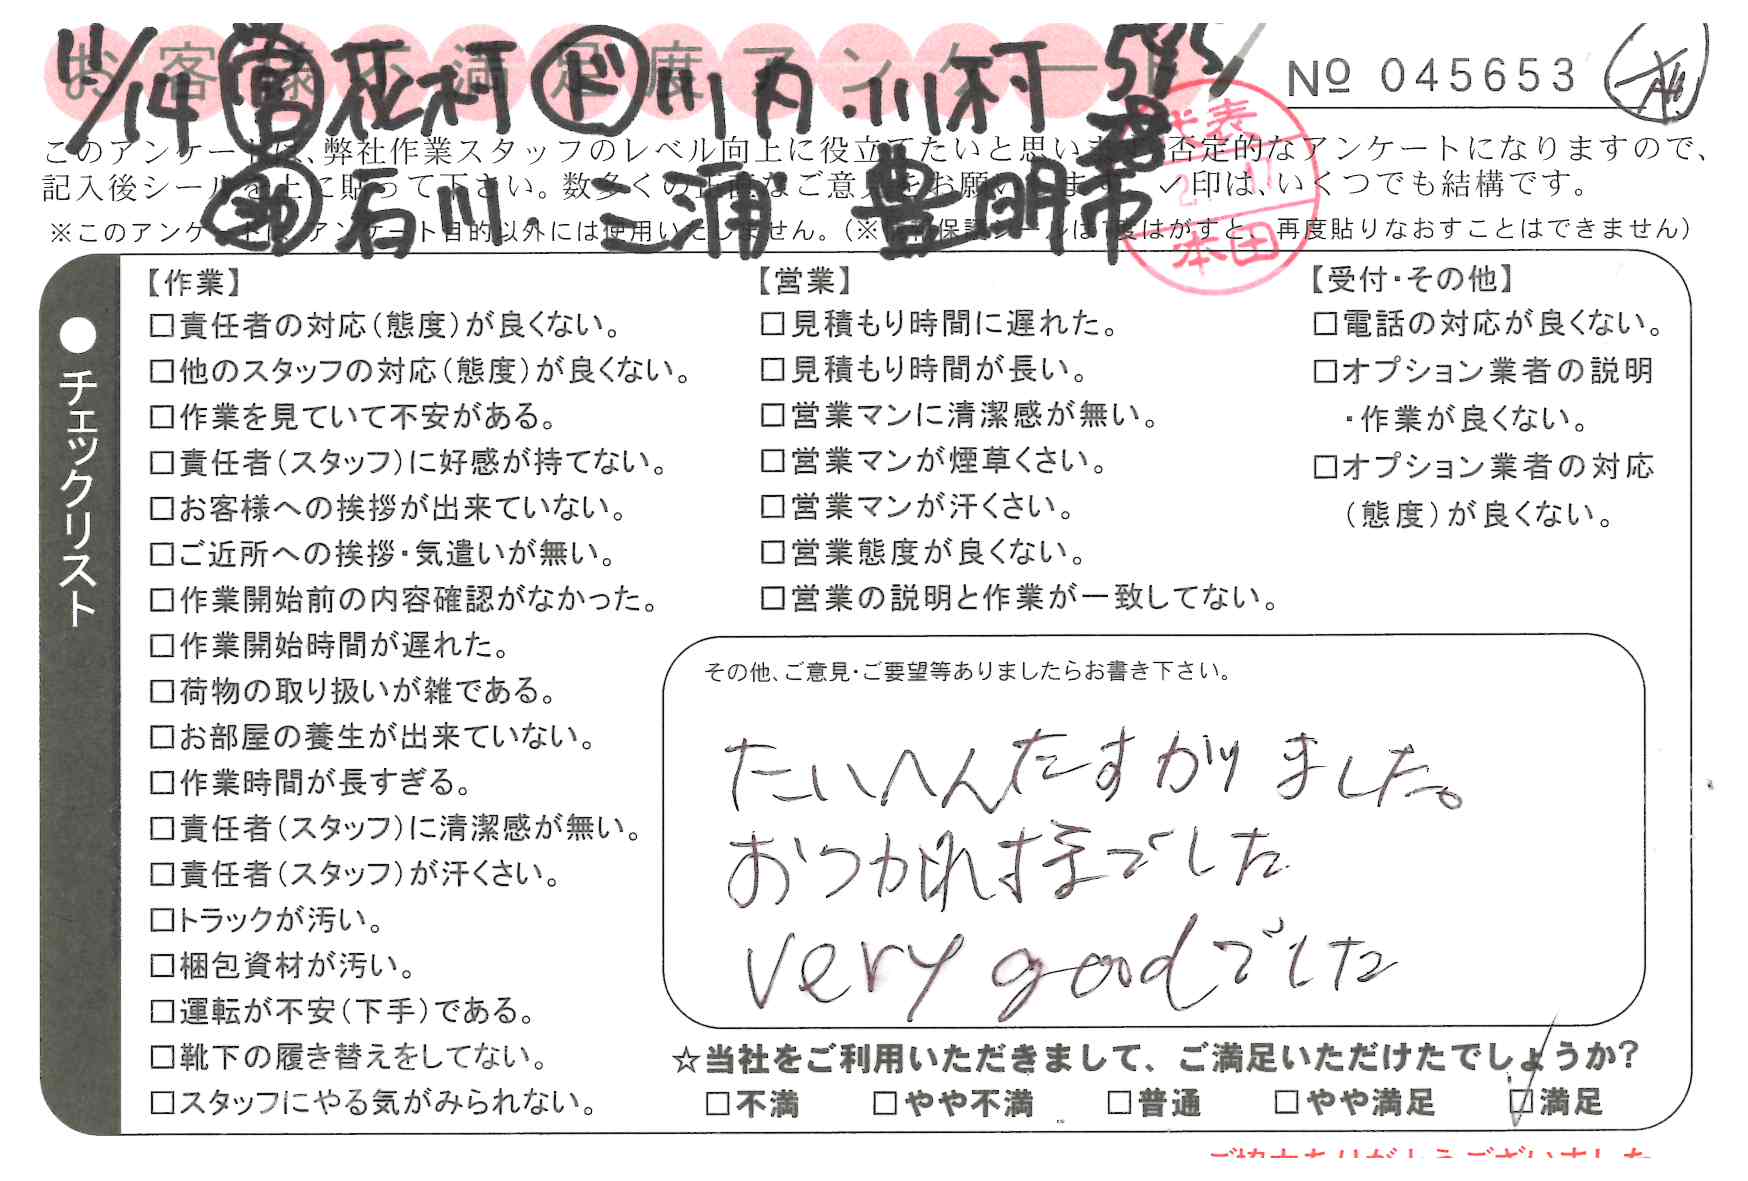 お客様不満足度アンケート
11/14 営 花村 ド 川内・川村
№ 045653
このアンケートは、弊社作業スタッフのレベル向上に役立てたいと思います。否定的なアンケートになりますので、
記入後シールを上に貼って下さい。数多くの正直なご意見をお願いします。✓印は、いくつでも結構です。
石川・三浦 豊明市
代表
本田
※このアンケートは、アンケート目的以外には使用いたしません。(※ 保護シールは1度はがすと、再度貼りなおすことはできません)
●チェックリスト
【作業】
□責任者の対応(態度)が良くない。
□他のスタッフの対応(態度)が良くない。
□作業を見ていて不安がある。
□責任者(スタッフ)に好感が持てない。
□お客様への挨拶が出来ていない。
□ご近所への挨拶・気遣いが無い。
□作業開始前の内容確認がなかった。
□作業開始時間が遅れた。
□荷物の取り扱いが雑である。
□お部屋の養生が出来ていない。
□作業時間が長すぎる。
□責任者(スタッフ)に清潔感が無い。
□責任者(スタッフ)が汗くさい。
□トラックが汚い。
□梱包資材が汚い。
□運転が不安(下手)である。
□靴下の履き替えをしてない。
□スタッフにやる気がみられない。
【営業】
□見積もり時間に遅れた。
□見積もり時間が長い。
□営業マンに清潔感が無い。
□営業マンが煙草くさい。
□営業マンが汗くさい。
□営業態度が良くない。
□営業の説明と作業が一致してない。
【受付・その他】
□電話の対応が良くない。
□オプション業者の説明
・作業が良くない。
□オプション業者の対応
(態度)が良くない。
その他、ご意見・ご要望等ありましたらお書き下さい。
たいへんたすかりました。
おつかれさまでした
very goodでした
☆当社をご利用いただきまして、ご満足いただけたでしょうか?
□不満 □やや不満 □普通 □やや満足 ☑満足
ご協力ありがとうございました